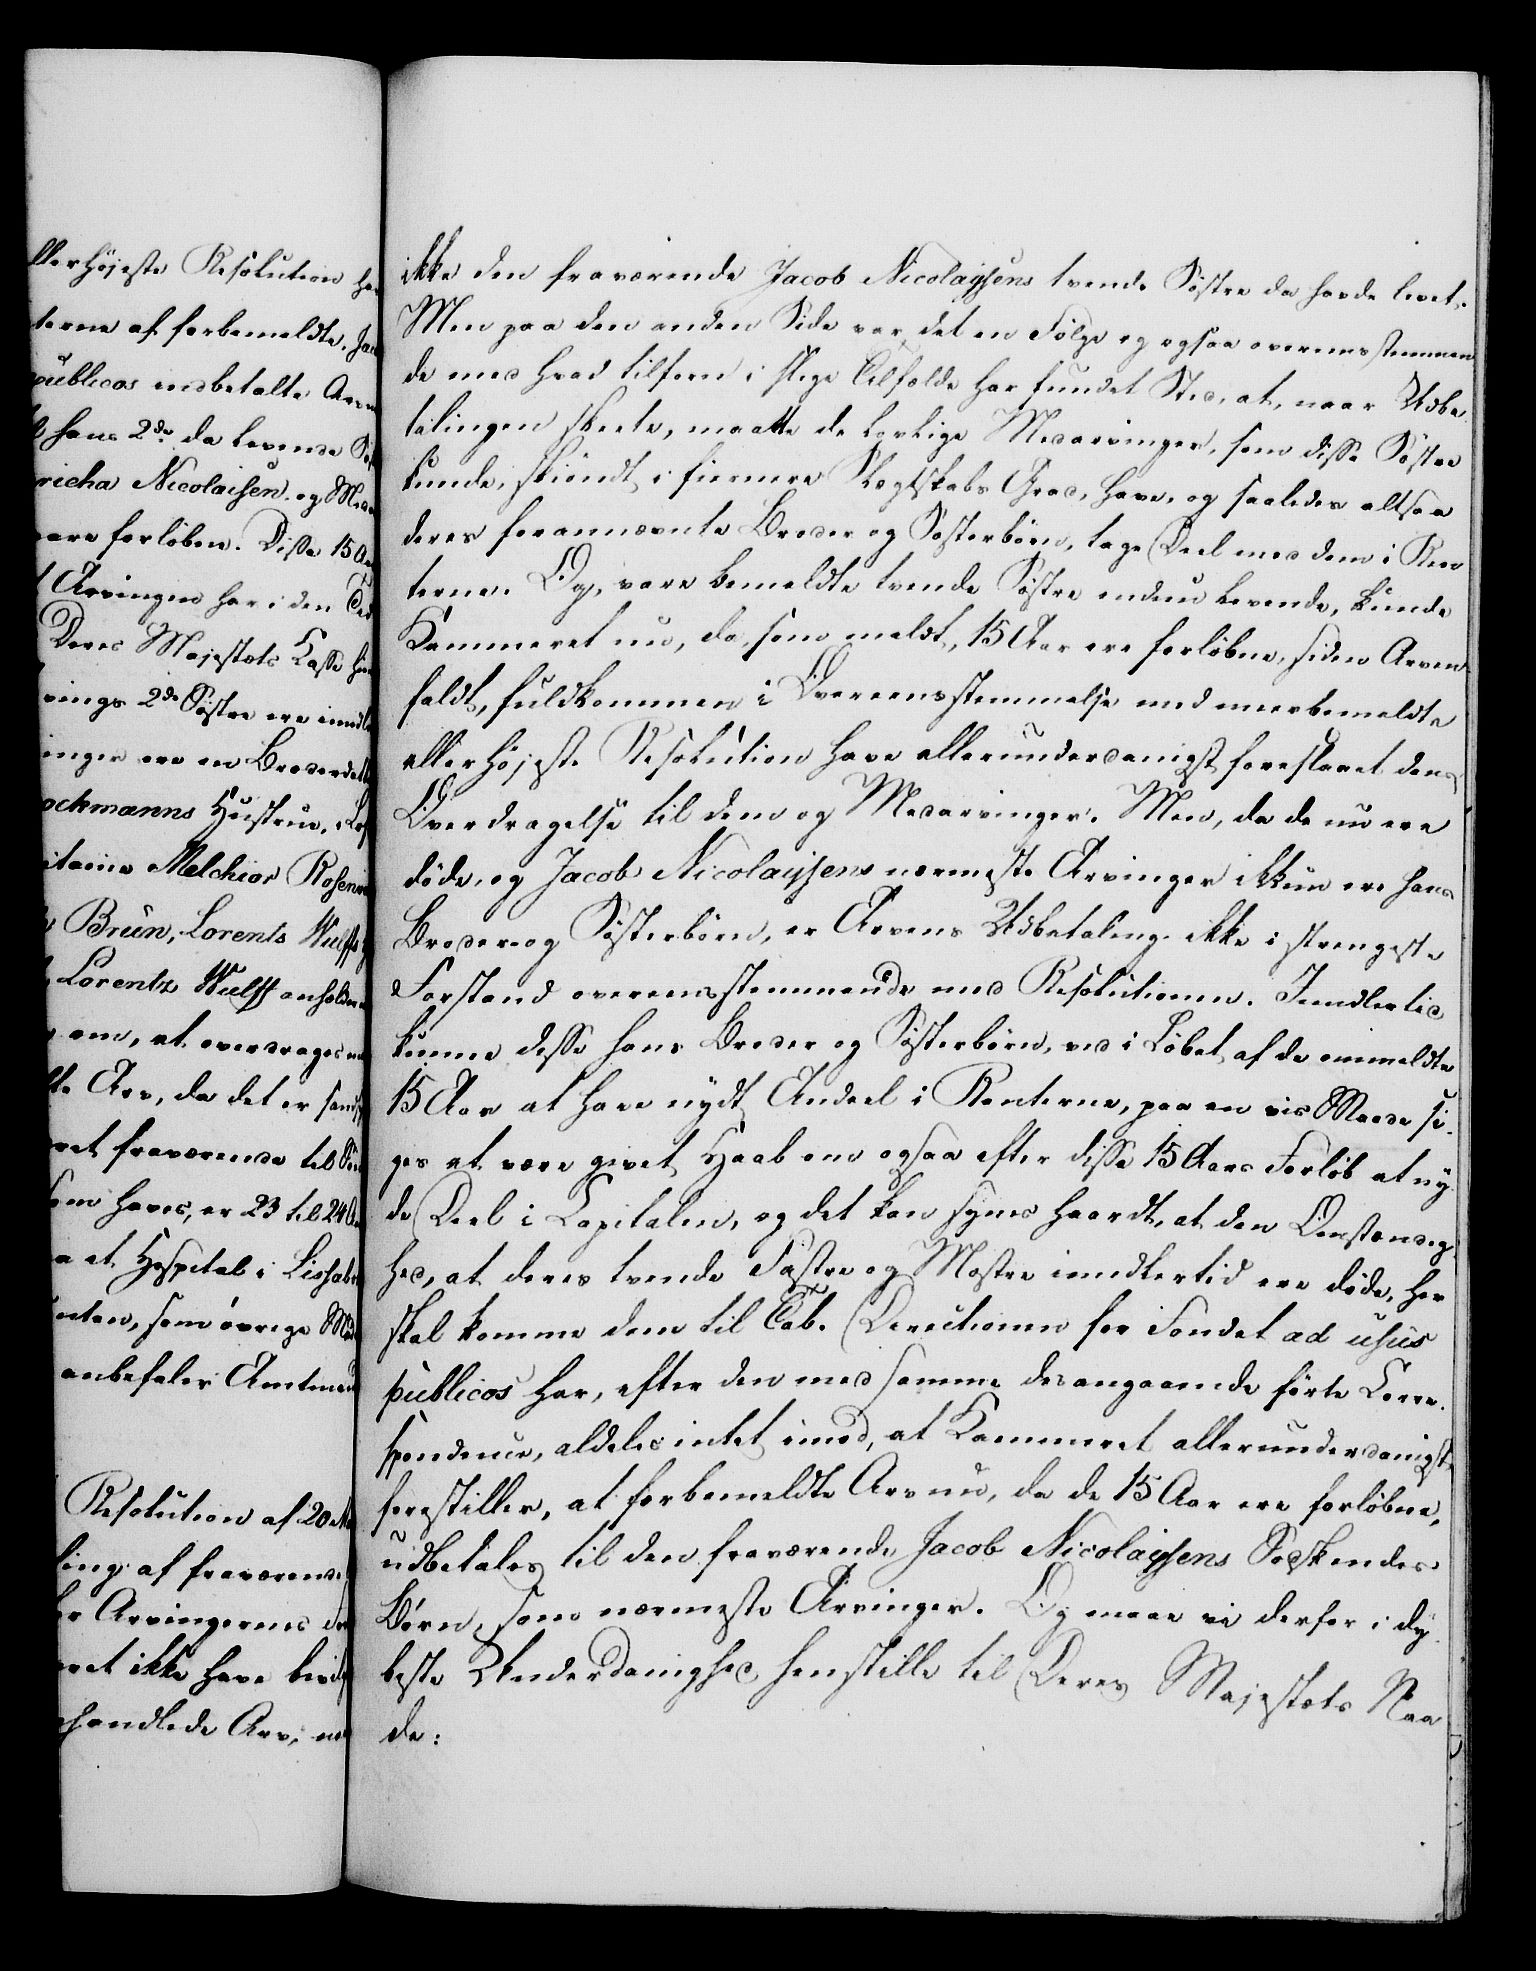 llerhøjeste Resolution ha
terne af forbemeldte Jac
publicos indbetalte Arv
hans 2de da levende Sø
richa Nicolaisen og Med
vare forløben. Disse 15 A
Arvingen har i den Tid
Deres Majestæts Kasse
vings 2de Søstre ere imidl
inger ere en Broderdatt
ockmanns Hustrue,
itaine Melchior Rosen
Brun, Lorents Wulffs
Lorentz Wulff anholde
om, at overdrages
te Arv, da det er
ret fraværende til
som haves, er 23 til 24 A
a et Hospital i Lissab
enten, som øvrige Med
anbefaler Amtmand
Resolution af 20
ling af fraværende
er Arvingernes
ret ikke have
handlede Arv,
ikke den fraværende Jacob Nicolaysens tvende Søstre da havde levet.
Men paa den anden Side var det en Følge og ogsaa overeensstemmen
de med hvad tilforn i slige Tilfælde har fundet Sted, at, naar Udbe
talingen skeete, maatte de lovlige Medarvinger, som disse Søstre
kunde, skiøndt i fiernere Slægtskabs Grad, have, og saaledes altsaa
deres forannævnte Broder og Søsterbørn, tage Deel med dem i Ren
terne. Og, vare bemeldte tvende Søstre endnu levende, kunde
Kammeret nu, da, som meldt, 15 Aar ere forløbne, siden Arven
faldt, fuldkommen i Overeensstemmelse med meerbemeldte
allerhøjeste Resolution have allerunderdanigst foreslaaet dens
Overdragelse til dem og Medarvinger. Men, da de nu ere
døde, og Jacob Nicolaysens nærmeste Arvinger ikkun ere hans
Broder- og Søsterbørn, er Arvens Udbetaling ikke i strengeste
Forstand overeensstemmende med Resolutionen. Imidlertid
kunne disse hans Broder og Søsterbørn, ved i Løbet af de ommeldte
15 Aar at have nydt Andeel i Renterne, paa en vis Maade si
ges at være givet Haab om ogsaa efter disse 15 Aars Forløb at ny
de Deel i Capitalen, og det kan synes haardt, at den Omstændig
hed, at deres tvende Fastre og Mostre imidlertid ere døde, her
skal komme dem til Tab. Directionen for Fondet ad usus
publicos har, efter den med samme desangaaende førte Corre
spondence, aldeles intet imod, at Kammeret allerunderdanigst
forestiller, at forbemeldte Arv nu, da de 15 Aar ere forløbne,
udbetales til den fraværende Jacob Nicolaysens Sødskendes
Børn, som nærmeste Arvinger. Og maae vi derfor i dy
beste Underdanighed henstille til Deres Majestæts Naa
de: